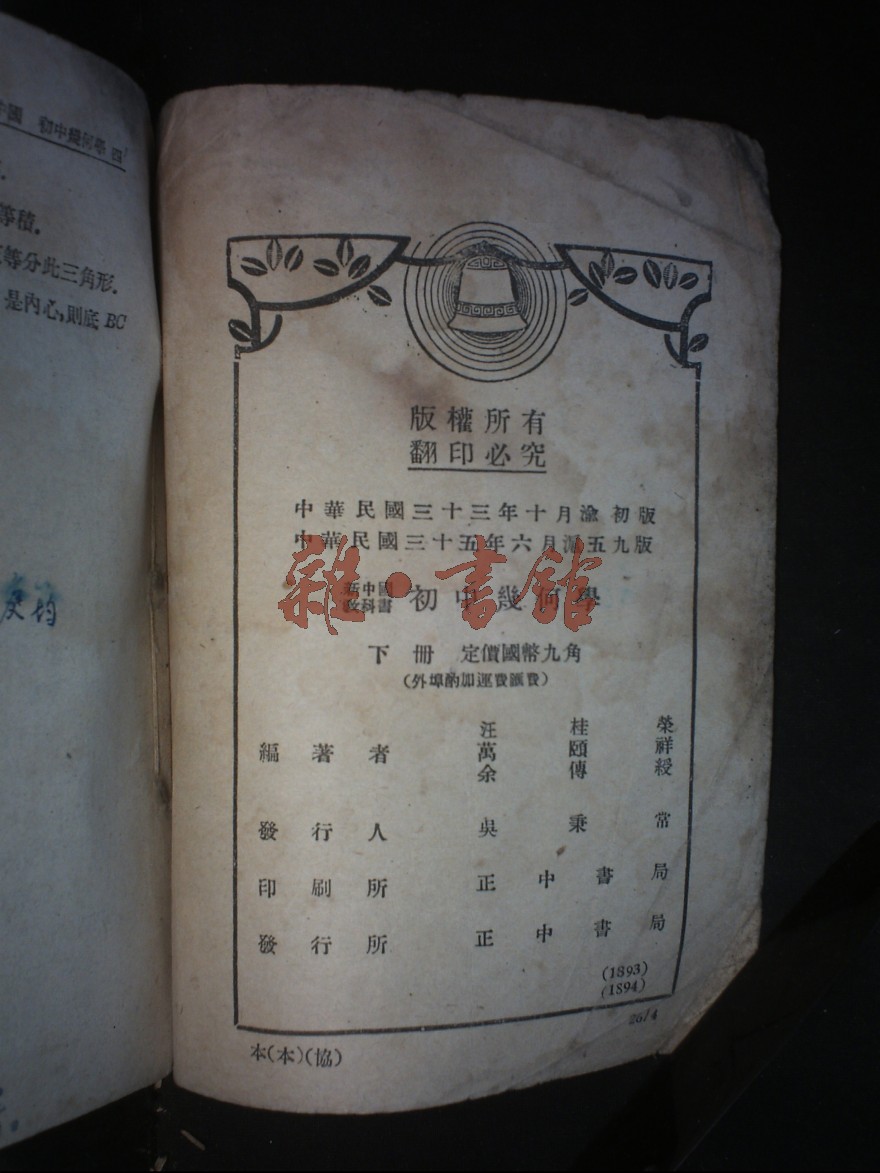 初中幾何學 四
等積.
等分此三角形.
是內心,則底 BC
版權所有
翻印必究
中華民國三十三年十月渝初版
中華民國三十五年六月滬五九版
新中國
教科書 初中幾何學
下冊 定價國幣九角
(外埠酌加運費匯費)
編著者 汪桂榮
萬頤祥
余傳綬
發行人 吳秉常
印刷所 正中書局
發行所 正中書局
(1893)
(1894)
26/4
本(本)(協)
雜·書館